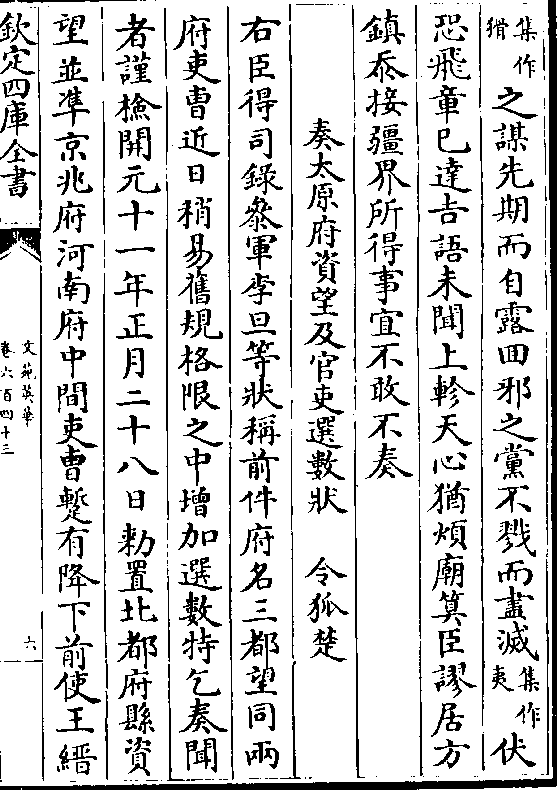 集作猾之謀先期而自露回邪之黨不戮而盡滅集作夷伏
恐飛章已達吉語未聞上軫天心猶煩廟筭臣謬居方
鎮忝接疆界所得事宜不敢不奏
奏太原府資望及官吏選數狀　令狐楚
右臣得司錄叅軍李旦等狀稱前件府名三都望同兩
府吏曹近日稍易舊規格限之中增加選數特乞奏聞
者謹檢開元十一年正月二十八日勑置北都府縣資
望並凖京兆府河南府中間吏曹蹔有降下前使王縉
欽定四庫全書
文苑英華
卷六百四十三
六